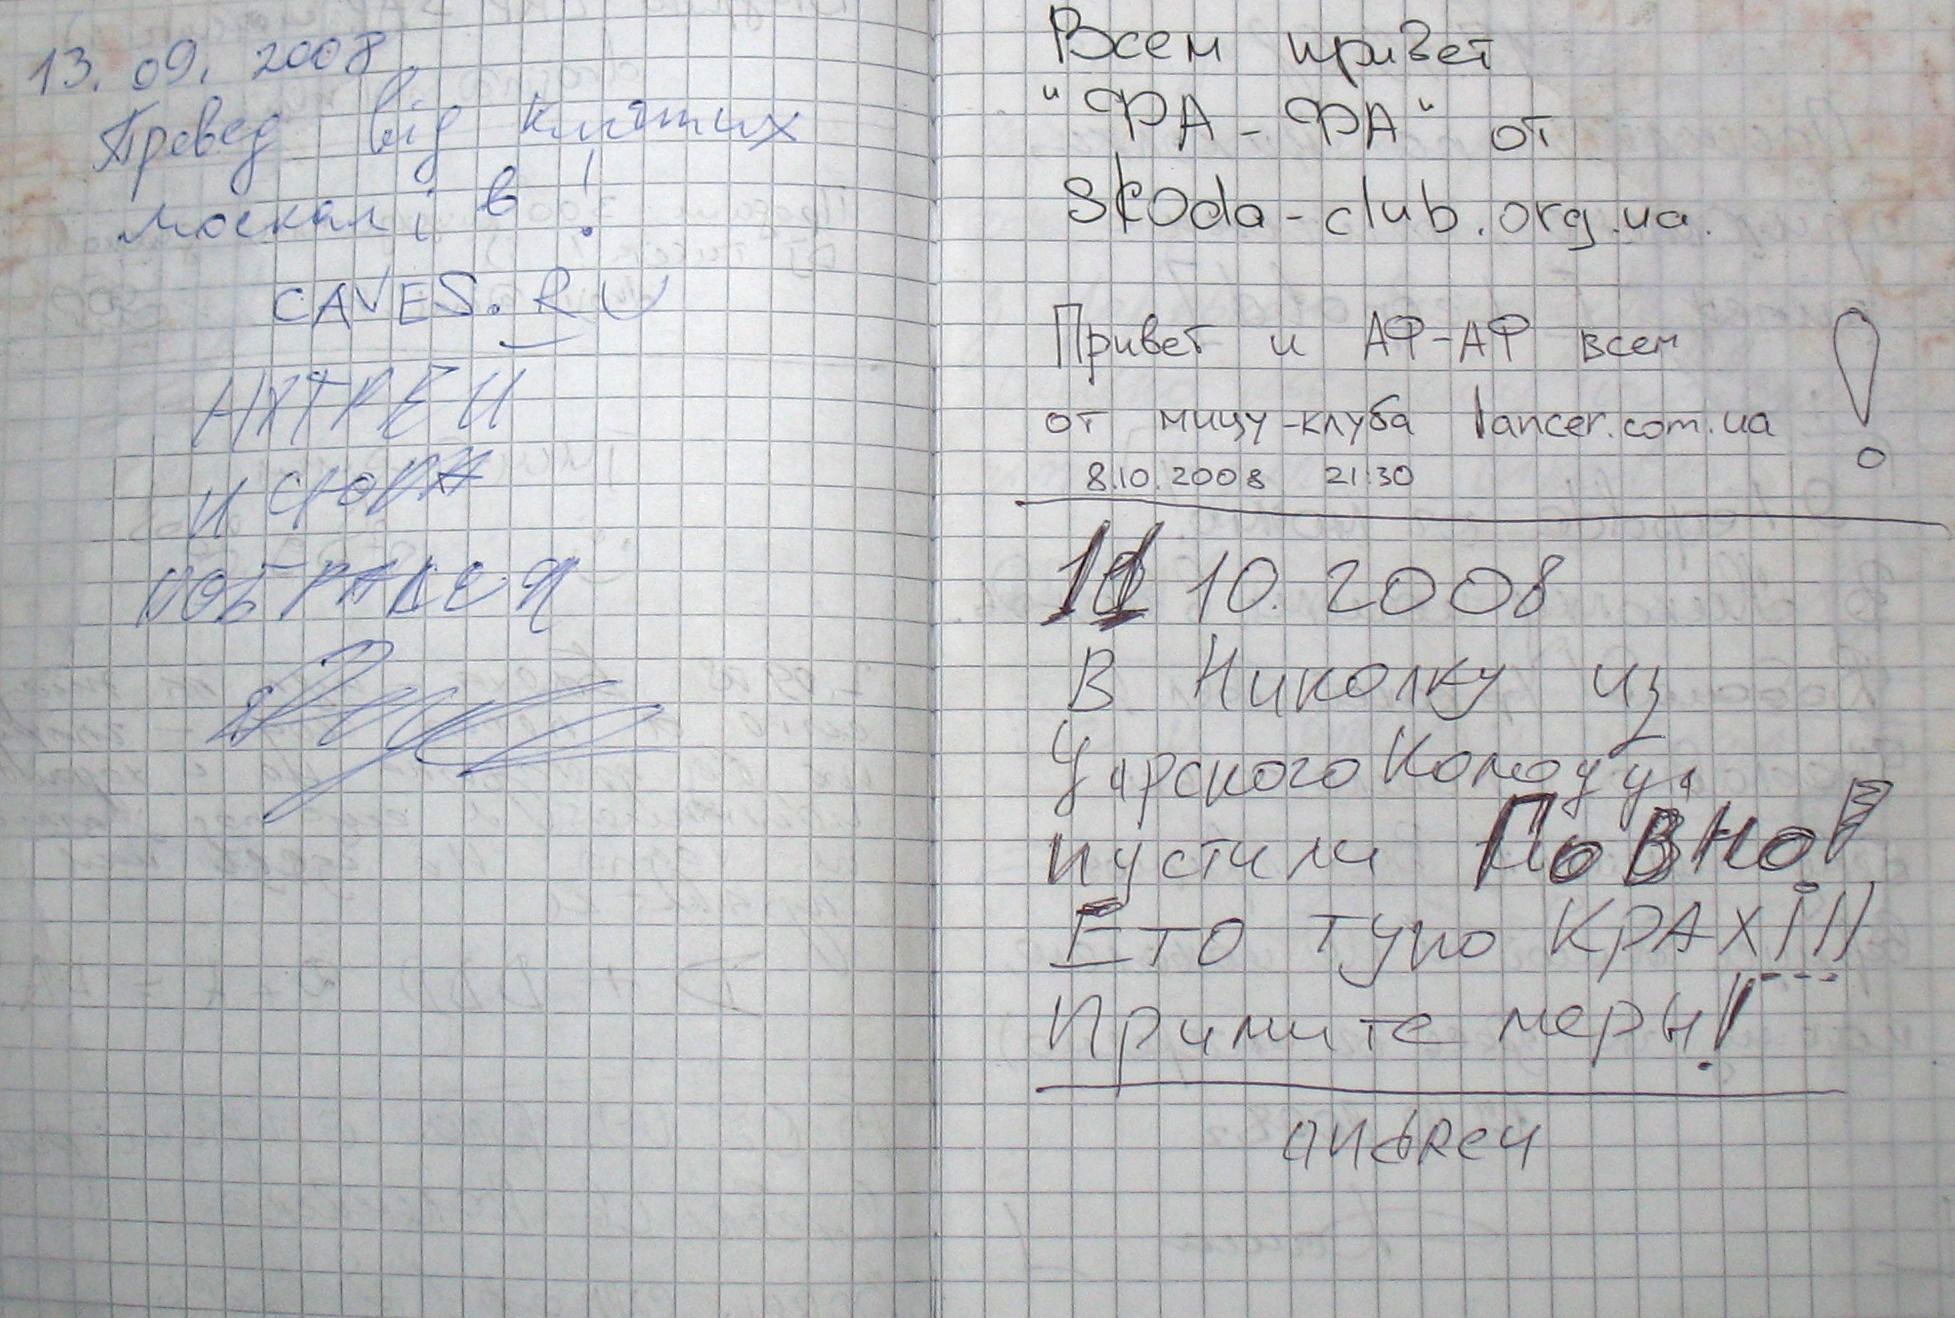 13.09.2008
Превед від клятих
москалів!
CAVES.RU
И СЮДА
ДОБРАЛСЯ
Всем привет
"ФА-ФА" от
Skoda-club.org.ua.
Привет и АФ-АФ всем
от мицу-клуба lancer.com.ua !
8.10.2008 21:30
11 10.2008
В Николку из
Царского Колодца
пустили ГоВНо!
Ето тупо КРАХ!!!
Примите меры!
андRей